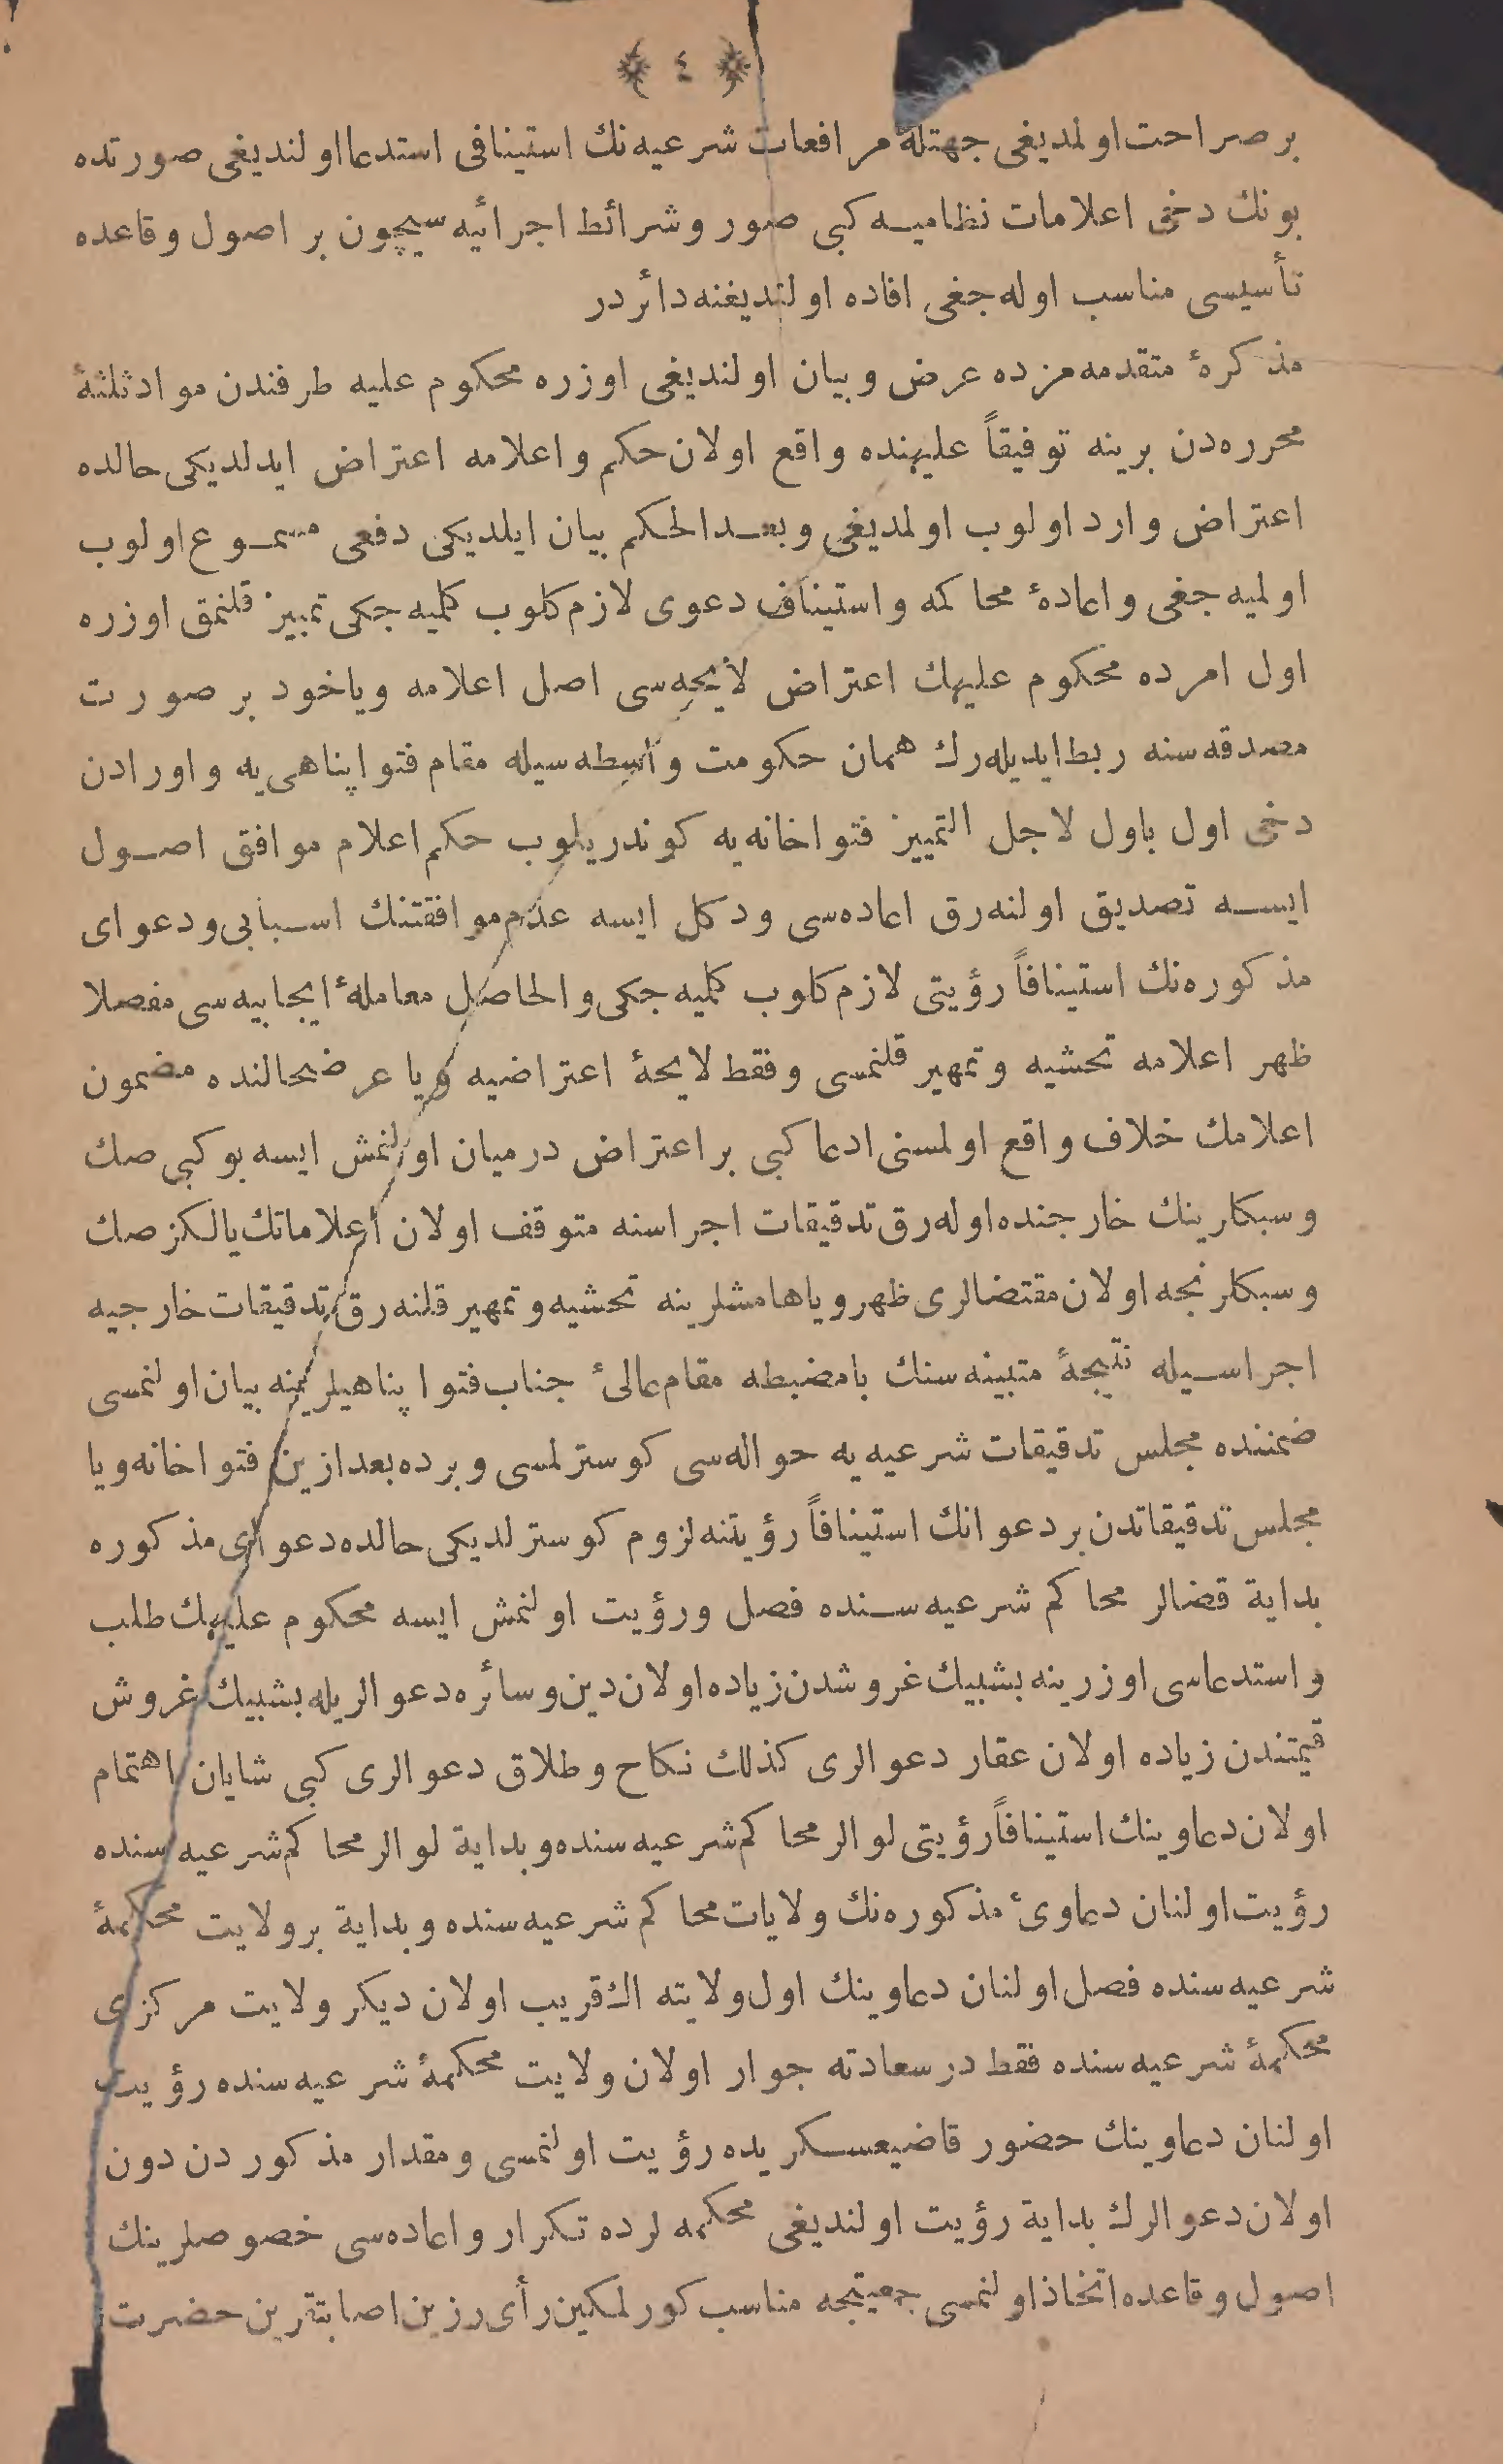 ﴿ ٤ ﴾
بر صراحت اولمديغى جهتله مرافعات شرعيه نك استينافى استدعا اولنديغى صورتده
بونك دخى اعلامات نظاميه كبى صور وشرائط اجرائيه سيچون بر اصول وقاعده
تأسيسى مناسب اوله جغى افاده اولنديغنه دائردر
مذكرۀ متقدمه مزده عرض وبيان اولنديغى اوزره محكوم عليه طرفندن مواد ثلثۀ
محرره دن برينه توفيقاً عليهنده واقع اولان حكم واعلامه اعتراض ايدلديكى حالده
اعتراض وارد اولوب اولمديغى وبعدالحكم بيان ايلديكى دفعى مسموع اولوب
اولميه جغى واعادۀ محاكمه واستيناف دعوى لازم كلوب كلميه جكى تمييز قلنمق اوزره
اول امرده محكوم عليهك اعتراض لايحه سى اصل اعلامه وياخود بر صورت
مصدقه سنه ربط ايديله رك همان حكومت واسطه سيله مقام فتواپناهى يه واورادن
دخى اول باول لاجل التمييز فتواخانه يه كوندريلوب حكم اعلام موافق اصول
ايسه تصديق اولنه رق اعاده سى ودكل ايسه عدم موافقتنك اسبابى ودعواى
مذكوره نك استينافاً رؤيتى لازم كلوب كلميه جكى والحاصل معاملۀ ايجابيه سى مفصلا
ظهر اعلامه تحشيه وتمهير قلنمسى وفقط لايحۀ اعتراضيه ويا عرضحالنده مضمون
اعلامك خلاف واقع اولمسنى ادعا كبى بر اعتراض درميان اولنمش ايسه بو كبى صك
وسبكارينك خارجنده اوله رق تدقيقات اجراسنه متوقف اولان اعلاماتك يالكز صك
وسبكلرنجه اولان مقتضالرى ظهر ويا هامشلرينه تحشيه وتمهير قلنه رق تدقيقات خارجيه
اجراسيله نتيجۀ متبينه سنك بامضبطه مقام عالئ جناب فتواپناهيلرينه بيان اولنمسى
ضمننده مجلس تدقيقات شرعيه يه حواله سى كوسترلمسى وبرده بعدازين فتواخانه ويا
مجلس تدقيقاتدن بر دعوانك استينافاً رؤيتنه لزوم كوسترلديكى حالده دعواى مذكوره
بداية قضالر محاكم شرعيه سنده فصل ورؤيت اولنمش ايسه محكوم عليهك طلب
واستدعاسى اوزرينه بشبيك غروشدن زياده اولان دين وسائره دعوالريله بشبيك غروش
قيمتندن زياده اولان عقار دعوالرى كذلك نكاح وطلاق دعوالرى كبى شايان اهتمام
اولان دعاوينك استينافاً رؤيتى لوالر محاكم شرعيه سنده وبداية لوالر محاكم شرعيه سنده
رؤيت اولنان دعاوئ مذكوره نك ولايات محاكم شرعيه سنده وبداية بر ولايت محكمۀ
شرعيه سنده فصل اولنان دعاوينك اول ولايته اك قريب اولان ديكر ولايت مركزى
محكمۀ شرعيه سنده فقط درسعادته جوار اولان ولايت محكمۀ شرعيه سنده رؤيت
اولنان دعاوينك حضور قاضيعسكريده رؤيت اولنمسى ومقدار مذكوردن دون
اولان دعوالرك بداية رؤيت اولنديغى محكمه لرده تكرار واعاده سى خصوصلرينك
اصول وقاعده اتخاذ اولنمسى جمعيتجه مناسب كورلمكين رأى رزين اصابتقرين حضرت